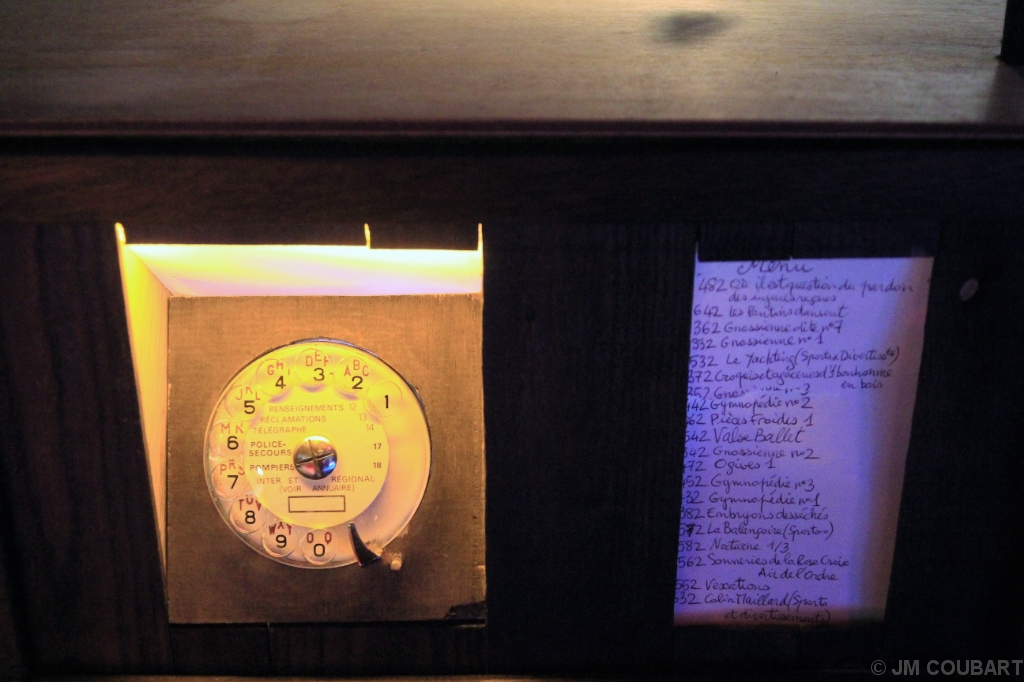 GHI
DEF
ABC
4
3
2
1
JKL
5
RENSEIGNEMENTS 12
RÉCLAMATIONS 13
TÉLÉGRAPHE 14
MN
6
POLICE-
SECOURS 17
PRS
7
POMPIERS 18
INTER ET RÉGIONAL
(VOIR ANNUAIRE)
TUV
8
WXY
9
OQ
0
Menu
482 Où il est question du pardon
des injures reçues
642 Les Pantins dansent
362 Gnossienne dite n°7
332 Gnossienne n°1
532 Le Yachting (Sports et Divertiss
372 Croquis et agaceries d'1 bonhomme
en bois
n°3
Gymnopédie n°2
Pièces Froides 1
Valse Ballet
Gnossienne n°2
Ogives 1
Gymnopédie n°3
Gymnopédie n°1
Embryons desséchés
La Balançoire (Sports
Nocturne 1/3
562 Sonneries de la Rose Croix
Air de l'Ordre
552 Vexations
Colin Maillard (Sports
et divertissements)
© JM COUBART